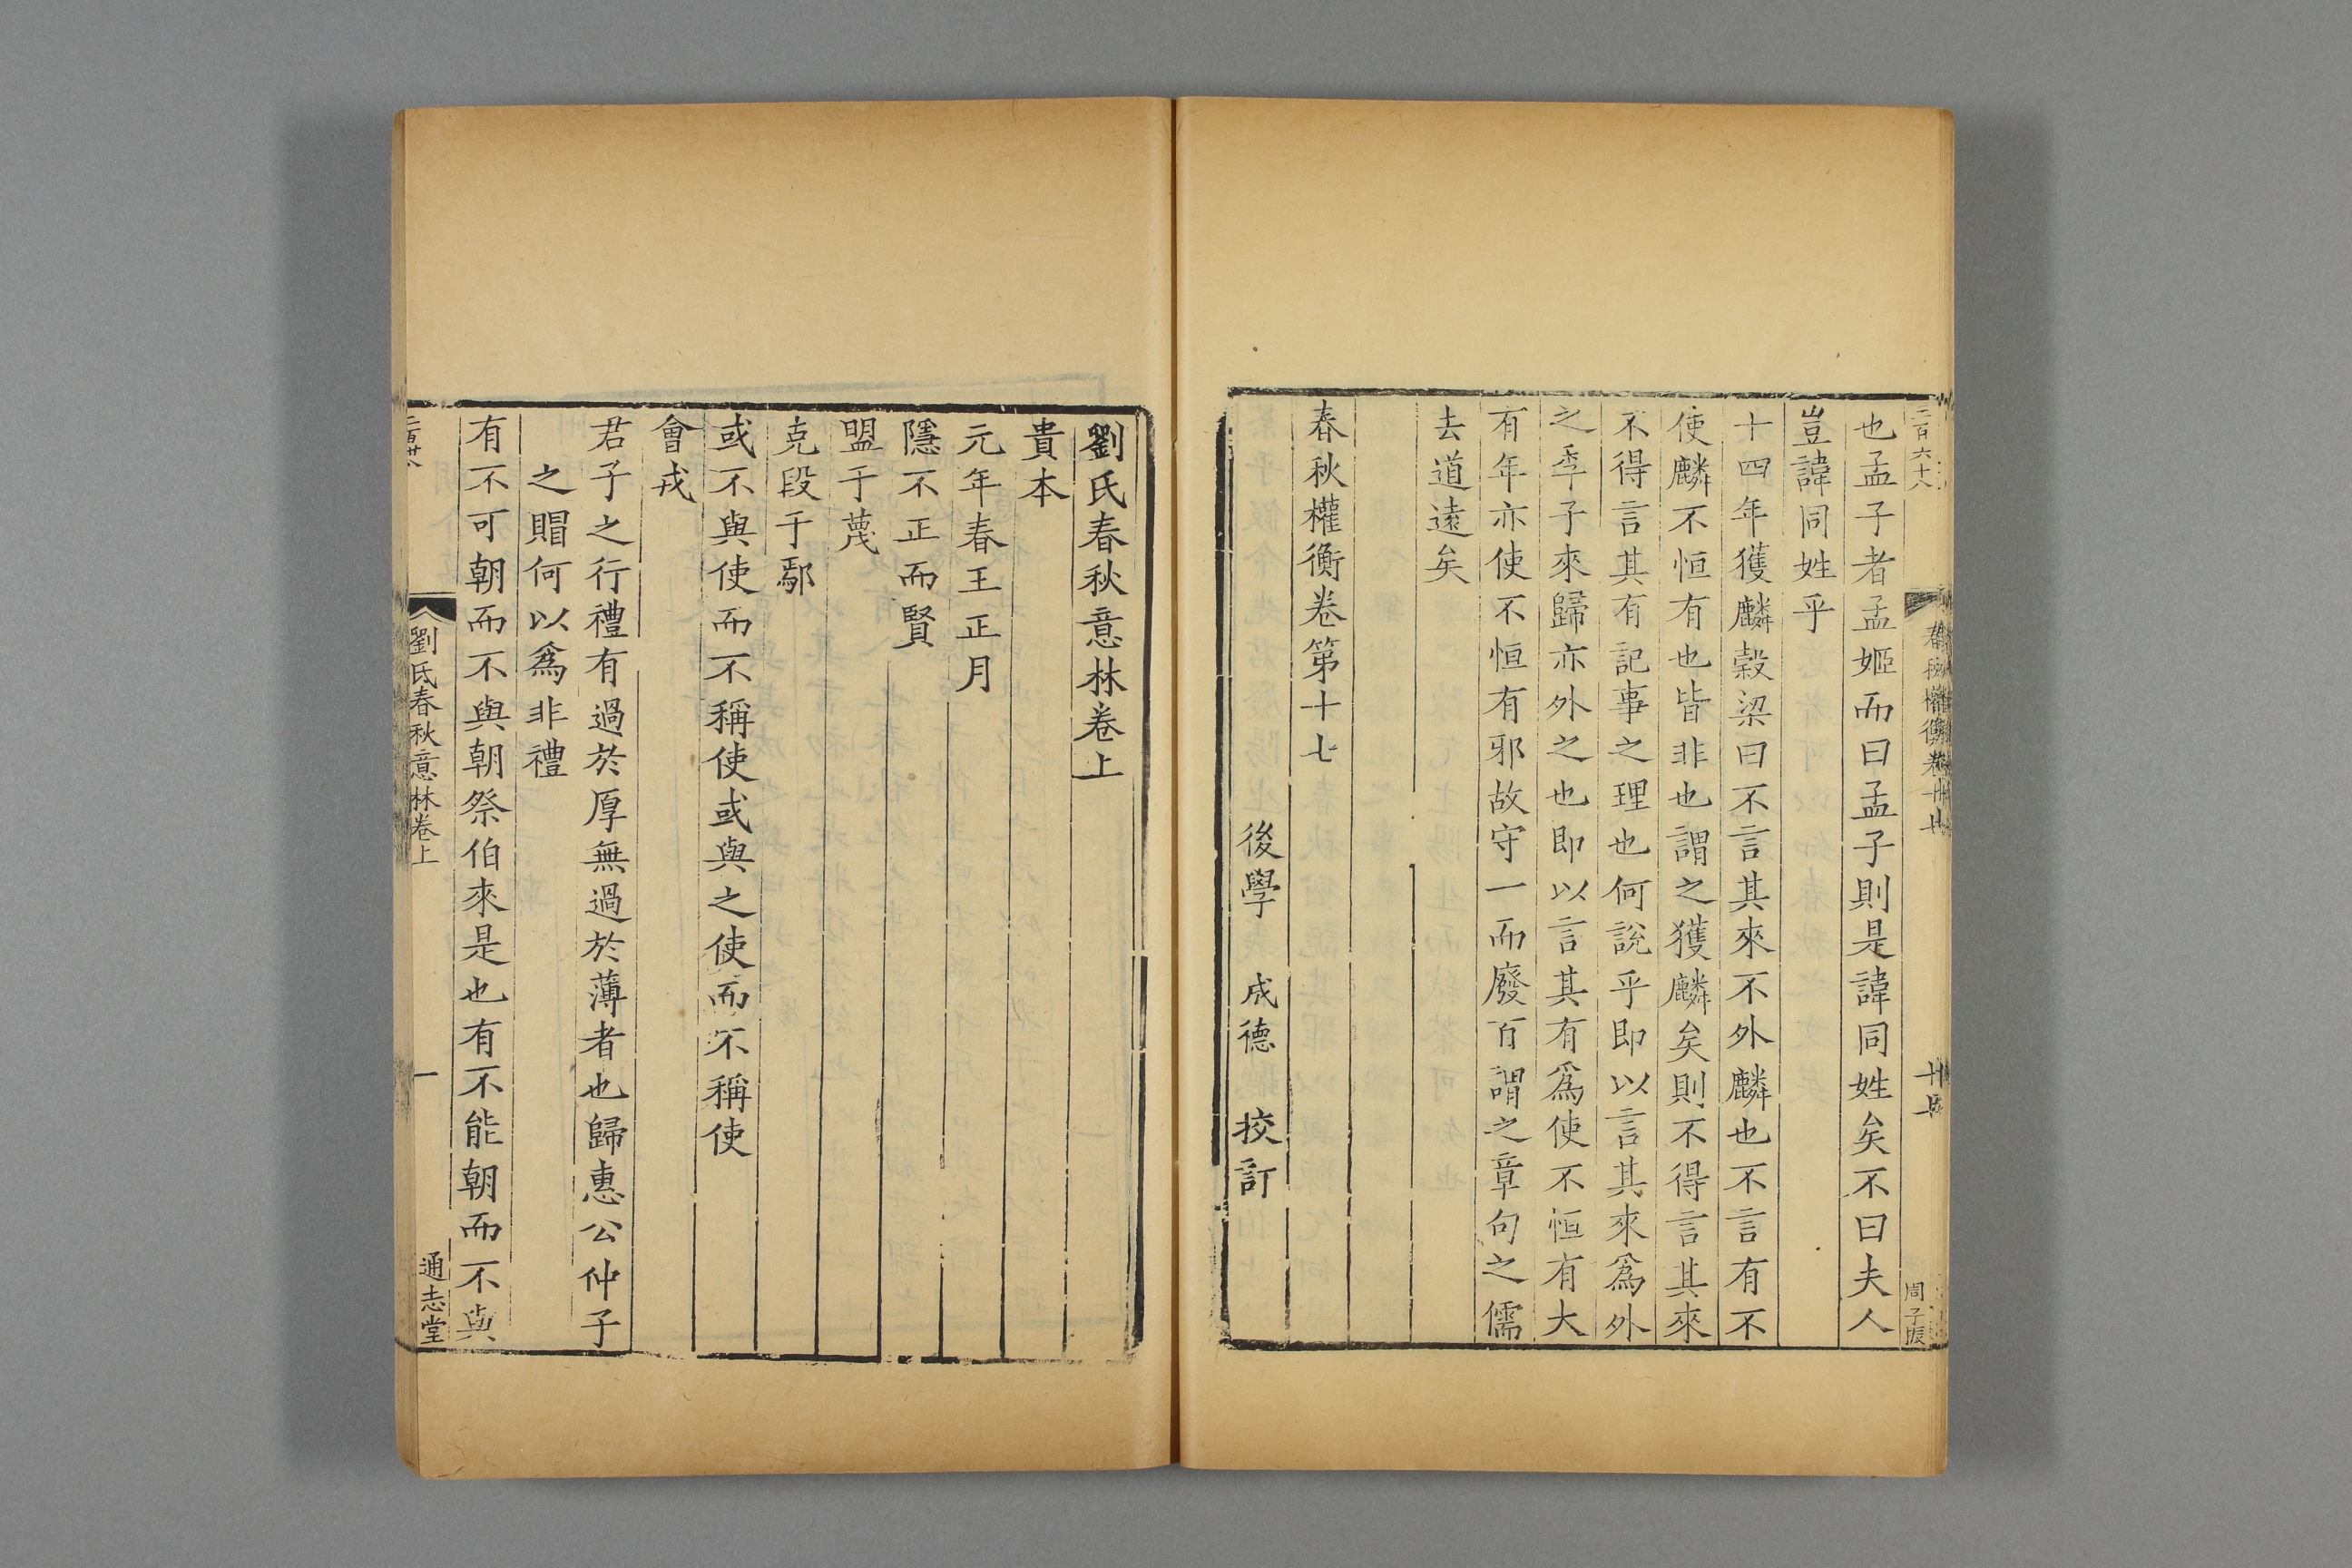 二百六十八
春秋權衡卷十七
周子振
也孟子者孟姬而曰孟子則是諱同姓矣不曰夫人
豈諱同姓乎
十四年獲麟穀梁曰不言其來不外麟也不言有不
使麟不恒有也皆非也謂之獲麟矣則不得言其來
不得言其有記事之理也何說乎即以言其來爲外
之季子來歸亦外之也即以言其有爲使不恒有大
有年亦使不恒有邪故守一而廢百謂之章句之儒
去道遠矣
春秋權衡卷第十七
後學 成德 挍訂
劉氏春秋意林卷上
貴本
元年春王正月
隱不正而賢
盟于蔑
克段于鄢
或不與使而不稱使或與之使而不稱使
會戎
君子之行禮有過於厚無過於薄者也歸惠公仲子
之賵何以爲非禮
有不可朝而不與朝祭伯來是也有不能朝而不與
劉氏春秋意林卷上
一
通志堂